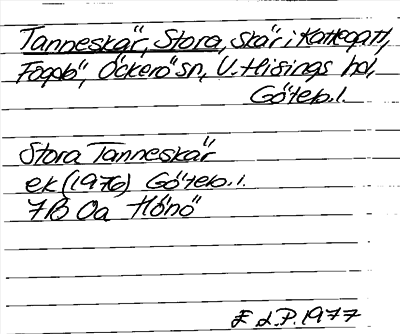 Tanneskär, Stora, skär i Kattegatt,
Fogdö, Öckerö sn, V. Hisings hd,
Göteb. l.
Stora Tanneskär
ek (1976) Göteb. l.
7B 0a Hönö
L.P. 1977